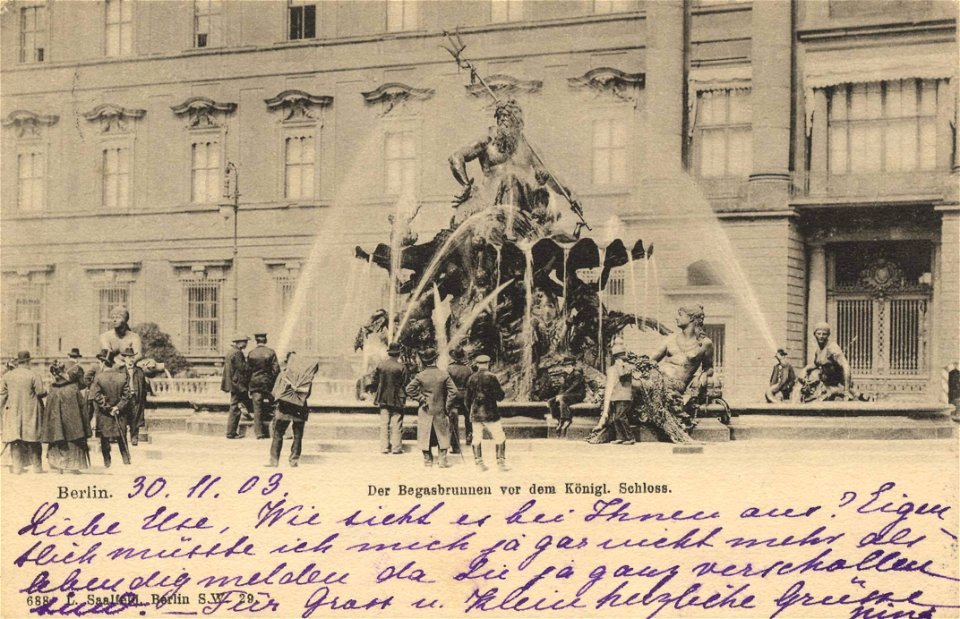 Berlin. 30. 11. 03. Der Begasbrunnen vor dem Königl. Schloss.
Liebe Else, Wie sieht es bei Ihnen aus? Eigent-
lich müsste ich mich ja gar nicht mehr als
lebendig melden da Sie ja ganz verschollen
sind. Für Gross u. Klein herzliche Grüsse
688. L. Saalfeld, Berlin S.W. 29.